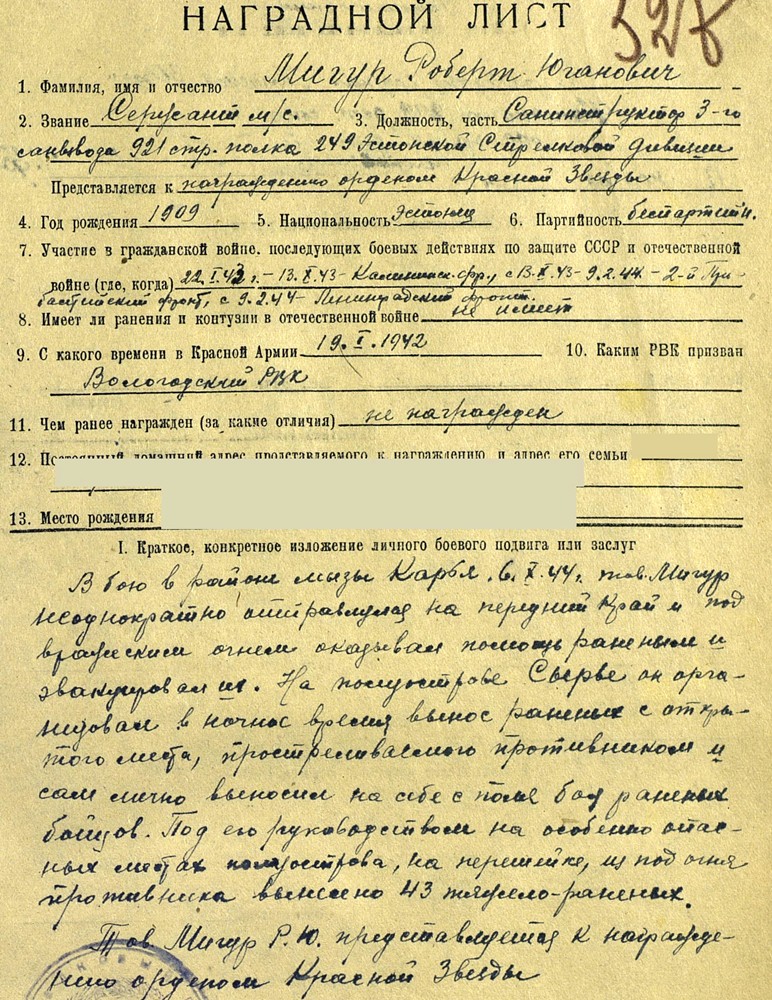 НАГРАДНОЙ ЛИСТ
328
1. Фамилия, имя и отчество Мигур Роберт Юганович
2. Звание Сержант м/с. 3. Должность, часть Санинструктор 3-го
санвзвода 921 стр. полка 249 Эстонской Стрелковой дивизии
Представляется к награждению орденом Красной Звезды
4. Год рождения 1909 5. Национальность Эстонец 6. Партийность беспартийн.
7. Участие в гражданской войне, последующих боевых действиях по защите СССР и отечественной
войне (где, когда) 22.I.43 г. - 13.X.43 - Калининск. фр., с 13.X.43 - 9.2.44 - 2-й При-
балтийский фронт, с 9.2.44 - Ленинградский фронт.
8. Имеет ли ранения и контузии в отечественной войне не имеет
9. С какого времени в Красной Армии 19.I.1942 10. Каким РВК призван
Вологодский РВК
11. Чем ранее награжден (за какие отличия) не награжден
12. Постоянный домашний адрес представляемого к награждению и адрес его семьи
13. Место рождения
I. Краткое, конкретное изложение личного боевого подвига или заслуг
В бою в районе мызы Карья 6.X.44. тов. Мигур
неоднократно отправлялся на передний край и под
вражеским огнем оказывал помощь раненым и
эвакуировал их. На полуострове Сырве он орга-
низовал в ночное время вынос раненых с откры-
того места, простреливаемого противником и
сам лично выносил на себе с поля боя раненых
бойцов. Под его руководством на особенно опас-
ных местах полуострова, на перешейке, из под огня
противника вынесено 43 тяжело-раненых.
Тов. Мигур Р.Ю. представляется к награжде-
нию орденом Красной Звезды